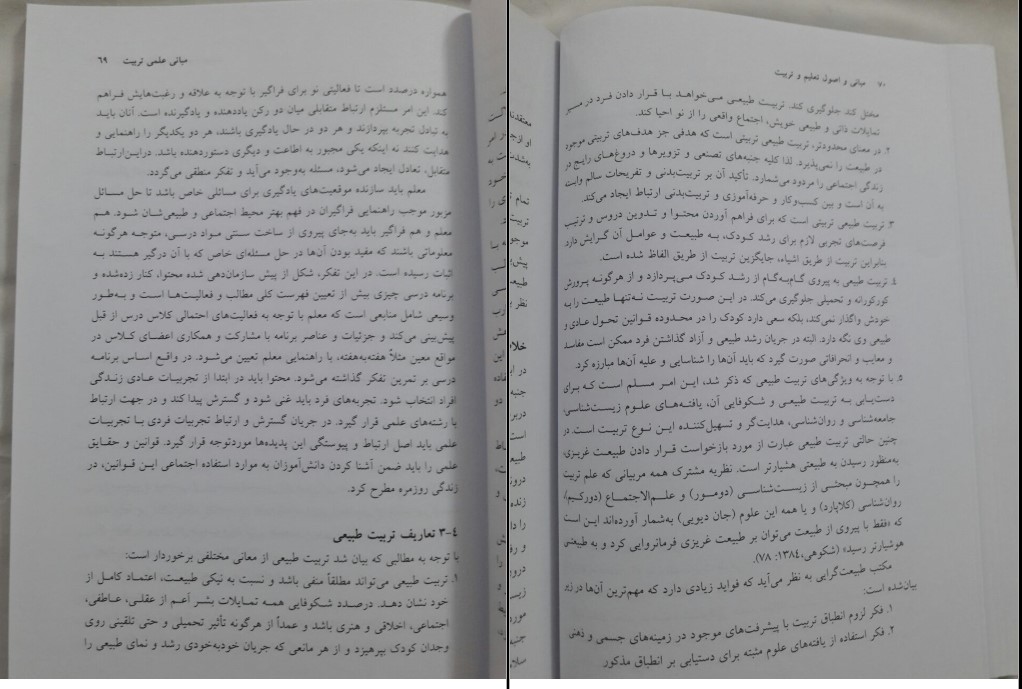 مبانی علمی تربیت ۶۹
همواره درصدد است تا فعالیتی نو برای فراگیر با توجه به علاقه و رغبت‌هایش فراهم
کند. این امر مستلزم ارتباط متقابلی میان دو رکن یاددهنده و یادگیرنده است. آنان باید
به تبادل تجربه بپردازند و هر دو در حال یادگیری باشند، هر دو یکدیگر را راهنمایی و
هدایت کنند نه اینکه یکی مجبور به اطاعت و دیگری دستوردهنده باشد. دراین‌ارتباط
متقابل، تعادل ایجاد می‌شود، مسئله به‌وجود می‌آید و تفکر منطقی می‌گردد.
معلم باید سازنده موقعیت‌های یادگیری برای مسائلی خاص باشد تا حل مسائل
مزبور موجب راهنمایی فراگیران در فهم بهتر محیط اجتماعی و طبیعی‌شان شود. هم
معلم و هم فراگیر باید به‌جای پیروی از ساخت سنتی مواد درسی، متوجه هرگونه
معلوماتی باشند که مفید بودن آن‌ها در حل مسئله‌ای خاص که با آن درگیر هستند به
اثبات رسیده است. در این تفکر، شکل از پیش سازمان‌دهی شده محتوا، کنار زده‌شده و
برنامه درسی چیزی بیش از تعیین فهرست کلی مطالب و فعالیت‌ها است و به‌طور
وسیعی شامل منابعی است که معلم با توجه به فعالیت‌های احتمالی کلاس درس از قبل
پیش‌بینی می‌کند و جزئیات و عناصر برنامه با مشارکت و همکاری اعضای کلاس در
مواقع معین مثلاً هفته‌به‌هفته، با راهنمایی معلم تعیین می‌شود. در واقع اساس برنامه
درسی بر تمرین تفکر گذاشته می‌شود. محتوا باید در ابتدا از تجربیات عادی زندگی
افراد انتخاب شود. تجربه‌های فرد باید غنی شود و گسترش پیدا کند و در جهت ارتباط
با رشته‌های علمی قرار گیرد. در جریان گسترش و ارتباط تجربیات فردی با تجربیات
علمی باید اصل ارتباط و پیوستگی این پدیده‌ها موردتوجه قرار گیرد. قوانین و حقایق
علمی را باید ضمن آشنا کردن دانش‌آموزان به موارد استفاده اجتماعی این قوانین، در
زندگی روزمره مطرح کرد.
۳-۴ تعاریف تربیت طبیعی
با توجه به مطالبی که بیان شد تربیت طبیعی از معانی مختلفی برخوردار است:
۱. تربیت طبیعی می‌تواند مطلقاً منفی باشد و نسبت به نیکی طبیعت، اعتماد کامل از
خود نشان دهد. درصدد شکوفایی همه تمایلات بشر أعم از عقلی، عاطفی،
اجتماعی، اخلاقی و هنری باشد و عمداً از هرگونه تأثیر تحمیلی و حتی تلقینی روی
وجدان کودک بپرهیزد و از هر مانعی که جریان خودبه‌خودی رشد و نمای طبیعی را
۷۰ مبانی و اصول تعلیم و تربیت
مختل کند جلوگیری کند. تربیت طبیعی می‌خواهد با قرار دادن فرد در مسیر
تمایلات ذاتی و طبیعی خویش، اجتماع واقعی را از نو احیا کند.
۲. در معنای محدودتر، تربیت طبیعی تربیتی است که هدفی جز هدف‌های تربیتی موجود
در طبیعت را نمی‌پذیرد. لذا کلیه جنبه‌های تصنعی و تزویرها و دروغ‌های رایج در
زندگی اجتماعی را مردود می‌شمارد. تأکید آن بر تربیت‌بدنی و تفریحات سالم وابسته
به آن است و بین کسب‌وکار و حرفه‌آموزی و تربیت‌بدنی ارتباط ایجاد می‌کند.
۳. تربیت طبیعی تربیتی است که برای فراهم آوردن محتوا و تدوین دروس و ترتیب
فرصت‌های تجربی لازم برای رشد کودک، به طبیعت و عوامل آن گرایش دارد
بنابراین تربیت از طریق اشیاء، جایگزین تربیت از طریق الفاظ شده است.
۴. تربیت طبیعی به پیروی گام‌به‌گام از رشد کودک می‌پردازد و از هرگونه پرورش
کورکورانه و تحمیلی جلوگیری می‌کند. در این صورت تربیت نه‌تنها طبیعت را به
خودش واگذار نمی‌کند، بلکه سعی دارد کودک را در محدوده قوانین تحول عادی و
طبیعی وی نگه دارد. البته در جریان رشد طبیعی و آزاد گذاشتن فرد ممکن است مفاسد
و معایب و انحرافاتی صورت گیرد که باید آن‌ها را شناسایی و علیه آن‌ها مبارزه کرد.
۵. با توجه به ویژگی‌های تربیت طبیعی که ذکر شد، این امر مسلم است که برای
دست‌یابی به تربیت طبیعی و شکوفایی آن، یافته‌های علوم زیست‌شناسی،
جامعه‌شناسی و روان‌شناسی، هدایت‌گر و تسهیل‌کننده این نوع تربیت است. در
چنین حالتی تربیت طبیعی عبارت از مورد بازخواست قرار دادن طبیعت غریزی،
به‌منظور رسیدن به طبیعتی هشیارتر است. نظریه مشترک همه مربیانی که علم تربیت
را همچون مبحثی از زیست‌شناسی (دومور) و علم‌الاجتماع (دورکیم)،
روان‌شناسی (کلاپارد) و یا همه این علوم (جان دیویی) به‌شمار آورده‌اند این است
که «فقط با پیروی از طبیعت می‌توان بر طبیعت غریزی فرمانروایی کرد و به طبیعتی
هوشیارتر رسید» (شکوهی،۱۳۸۴: ۷۸).
مکتب طبیعت‌گرایی به نظر می‌آید که فواید زیادی دارد که مهم‌ترین آن‌ها در زیر
بیان‌شده است:
۱. فکر لزوم انطباق تربیت با پیشرفت‌های موجود در زمینه‌های جسمی و ذهنی
۲. فکر استفاده از یافته‌های علوم مثبته برای دستیابی بر انطباق مذکور